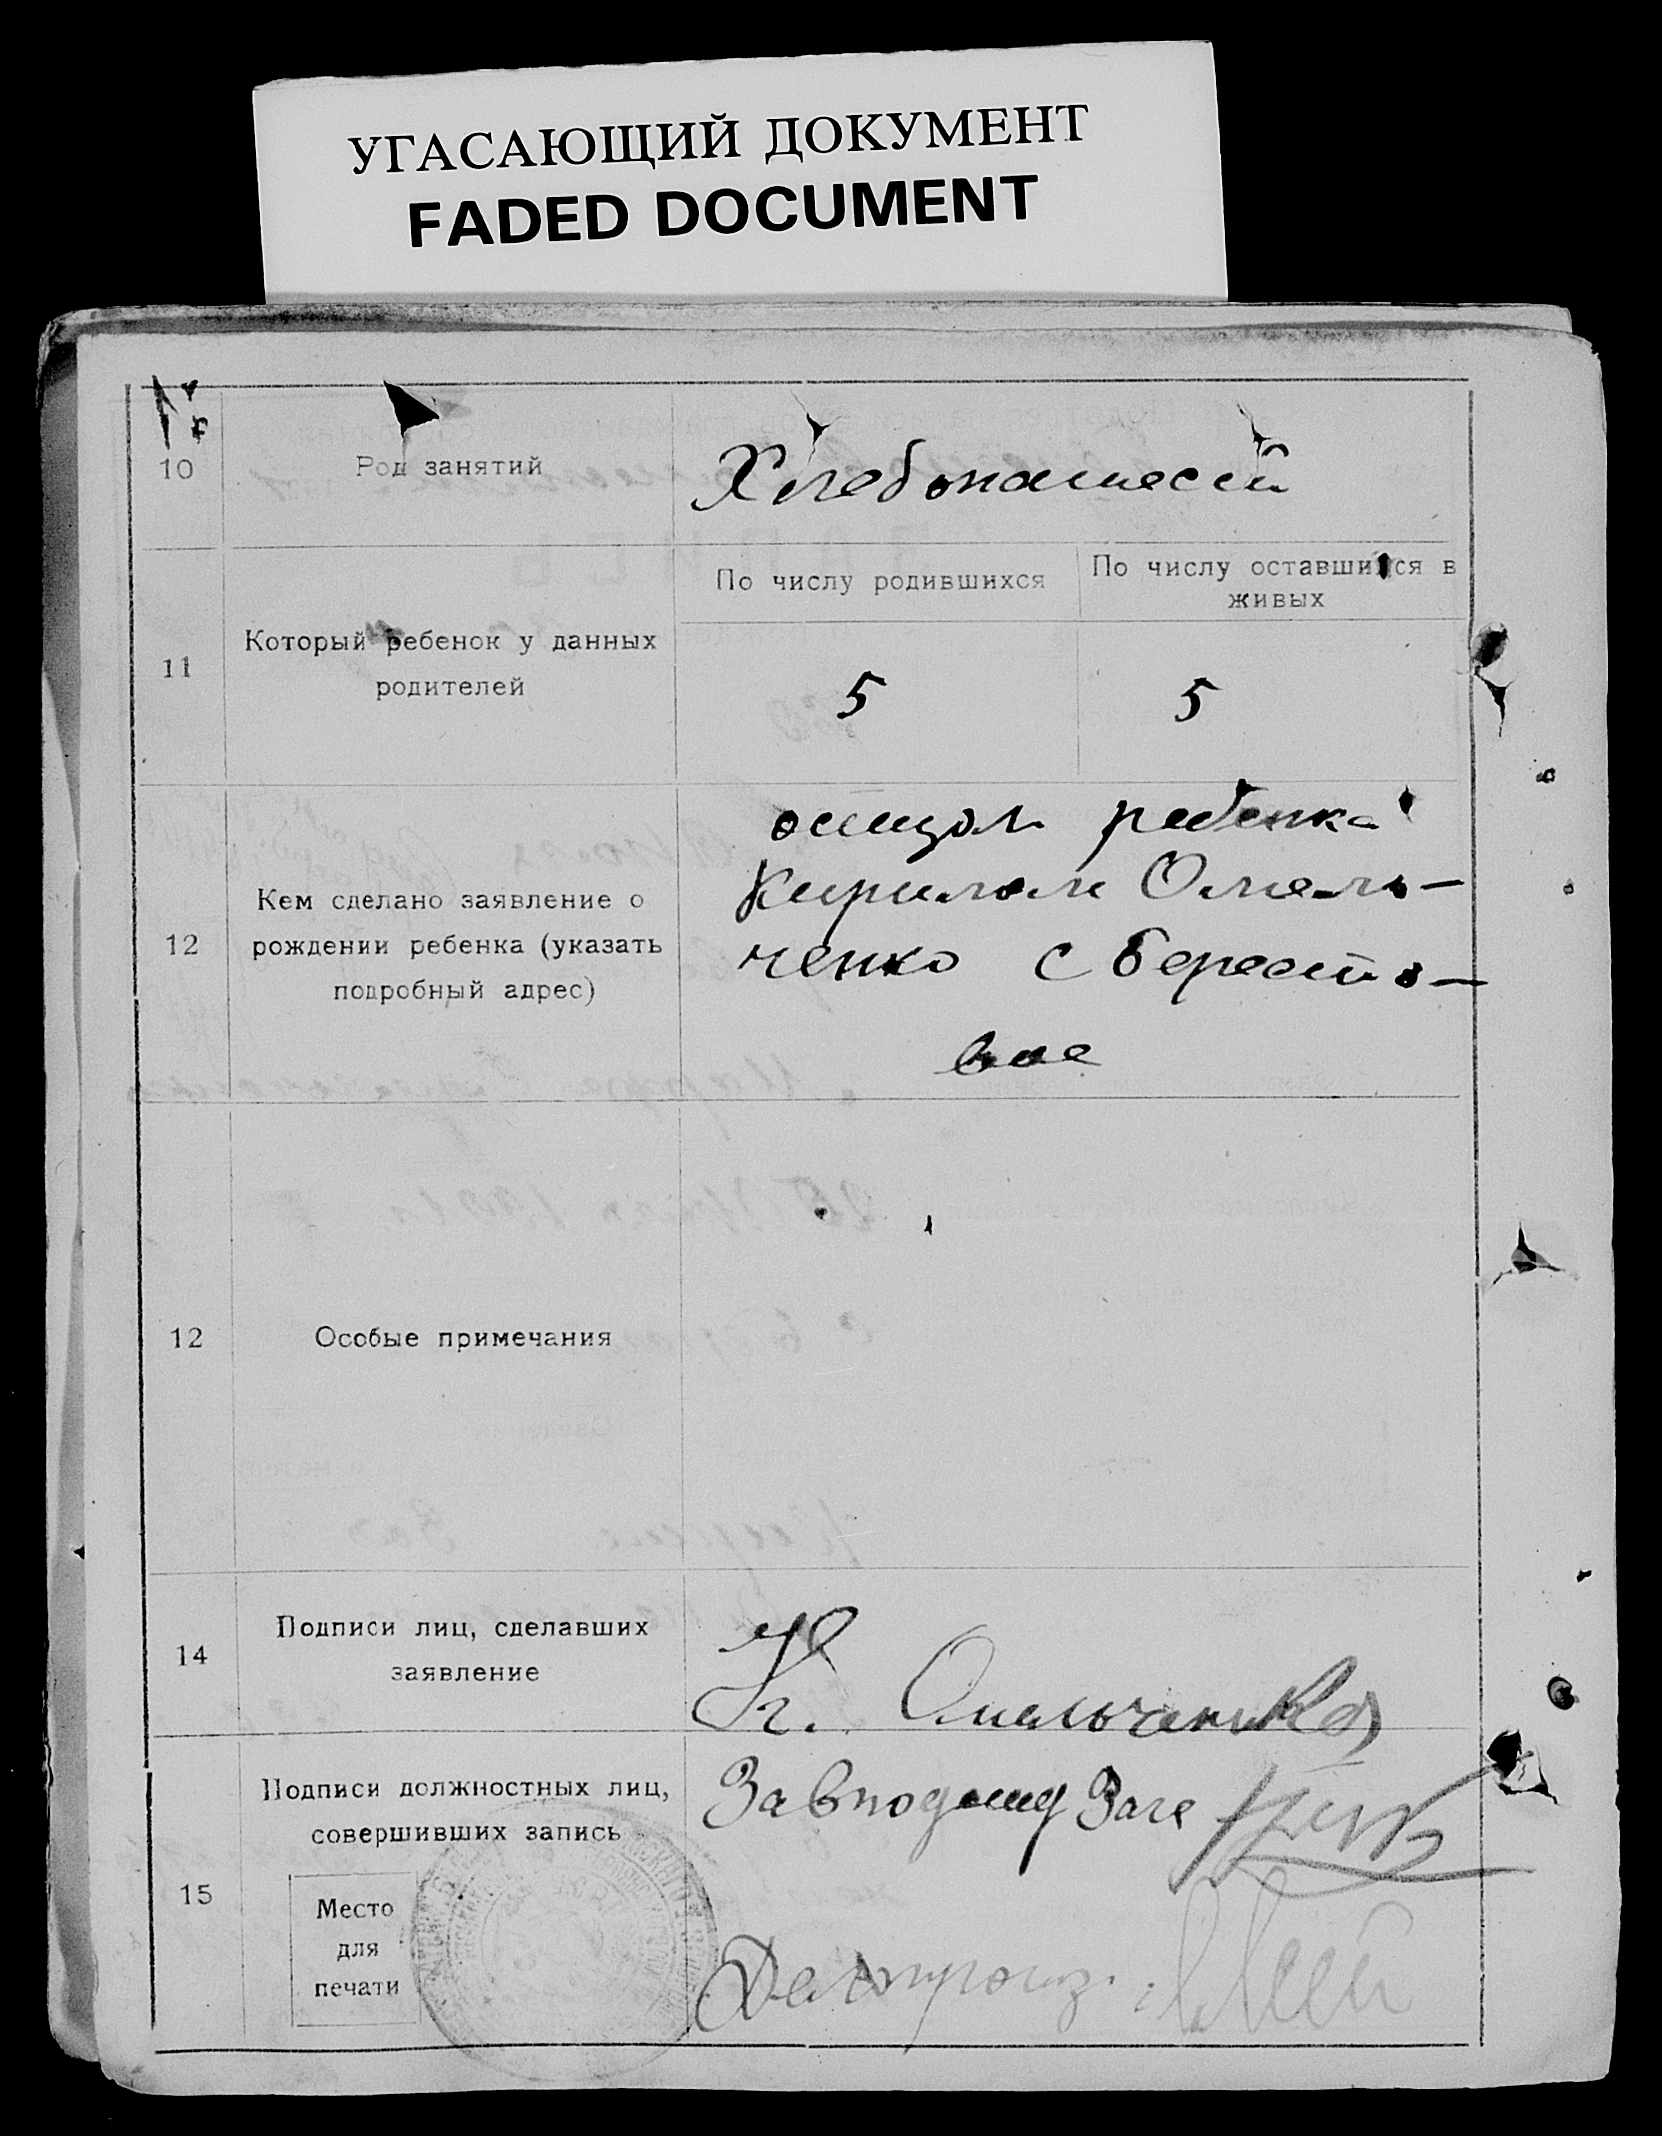 УГАСАЮЩИЙ ДОКУМЕНТ
FADED DOCUMENT
10
Род занятий
Хлебопашест
11
Который ребенок у данных
родителей
По числу родившихся
По числу оставшихся в
живых
5
5
12
Кем сделано заявление о
рождении ребенка (указать
подробный адрес)
отцом ребенка
Кирилом Омель-
ченко с Бересто-
вое
12
Особые примечания
14
Подписи лиц, сделавших
заявление
К. Омельченко
15
Подписи должностных лиц,
совершивших запись
Место
для
печати
Завподотд Загс
Делопроиз.